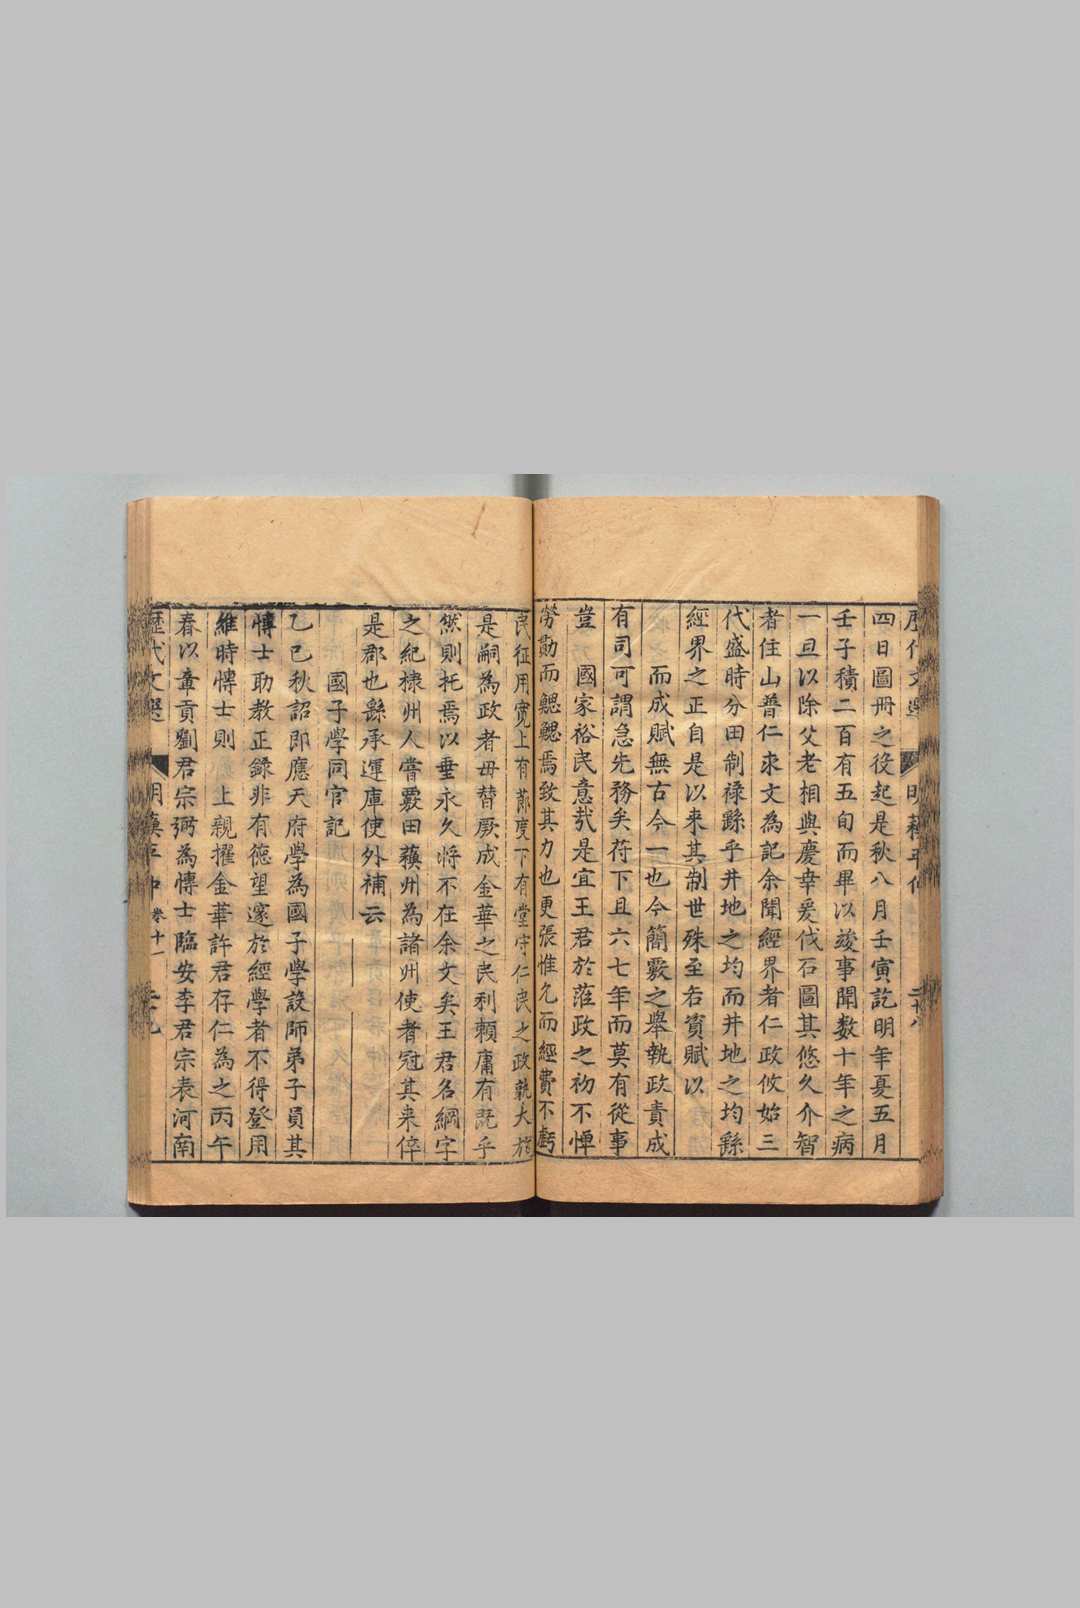 四日圖冊之役起是秋八月壬寅訖明年夏五月
壬子積二百有五旬而畢以竣事聞數十年之病
一旦以除父老相與慶幸爰伐石圖其悠久介智
者住山普仁求文為記余聞經界者仁政攸始三
代盛時分田制祿繇乎井地之均而井地之均繇
經界之正自是以来其制世殊至若資賦以
而成賦無古今一也今簡覈之舉執政責成
有司可謂急先務矣苻下且六七年而莫有從事
豈 國家裕民意㢤是宜王君於蒞政之初不憚
勞勩而鰓鰓焉致其力也更張惟允而經費不虧
民征用寬上有莭度下有堂守仁民之政孰大於
是嗣為政者毋替厥成金華之民利頼庸有旣乎
然則托焉以垂永久将不在余文矣王君名綱字
之紀棣州人嘗覈田蘓州為諸州使者冠其来倅
是郡也繇承運庫使外補云
國子學同官記
乙巳秋詔即應天府學為國子學設師弟子員其
愽士助教正錄非有德望邃於經學者不得登用
維時愽士則 上親擢金華許君存仁為之丙午
春以章貢劉君宗弼為愽士臨安李君宗表河南
歷代文選 明蘓平仲 卷十一 二十九